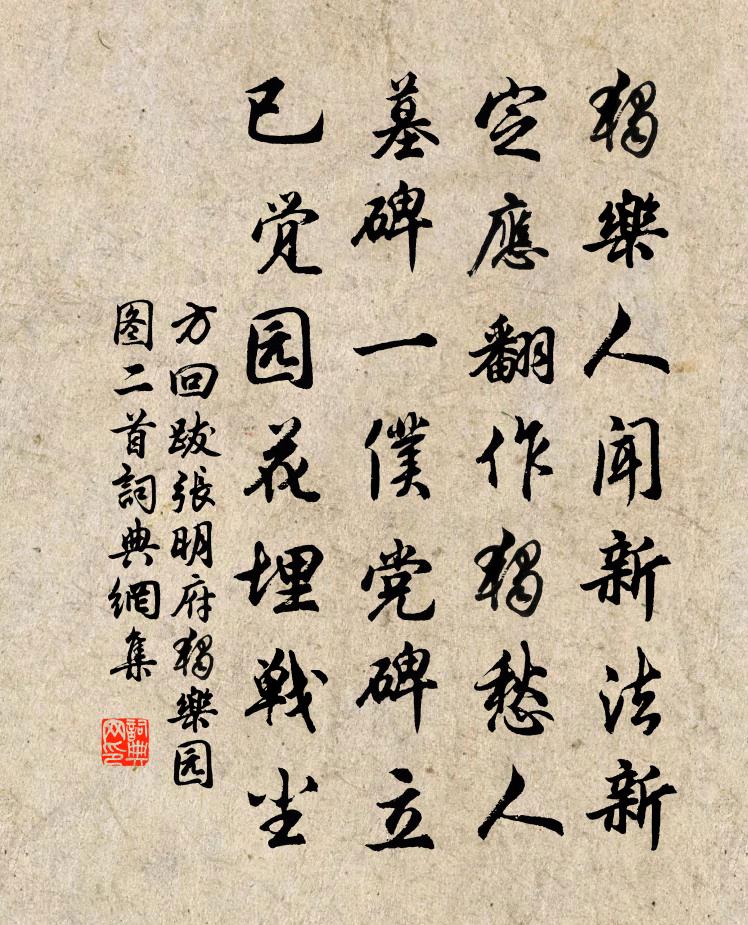 獨樂人闻新法新
定應翻作獨愁人
墓碑一僕党碑立
已觉园花埋戰尘
方回跋張明府獨樂园
图二首詞典網集
詞典
网印